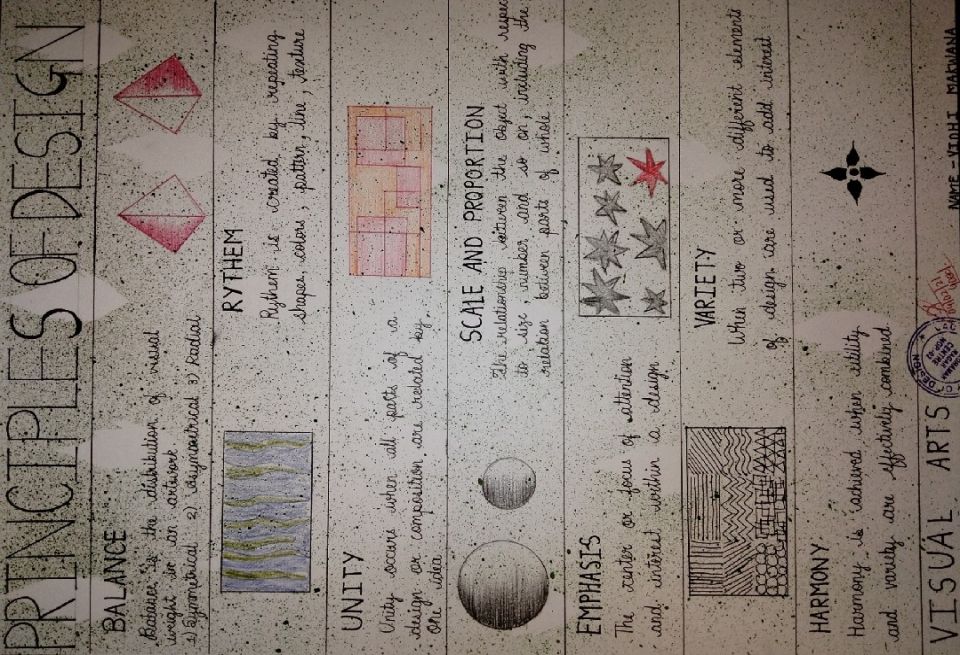 PRINCIPLES OF DESIGN
BALANCE
Balance is the distribution of visual
weight in an artwork
1) Symmetrical 2) asymmetrical 3) Radial
RYTHEM
Rythem is created by repeating
shapes, colors, pattern, line, texture
UNITY
Unity occurs when all parts of a
design or composition are related by
one idea
SCALE AND PROPORTION
The relationship between the object with respec
to size, number and so on, including the
relation between parts of whole
EMPHASIS
The center or focus of attention
and interest within a design
VARIETY
When two or more different elements
of design are used to add interest
HARMONY
Harmony is achieved when utility
and variety are effectively combined
VISUAL ARTS
DESIGN
CENTRE
NAME-VIDHI MAKWANA